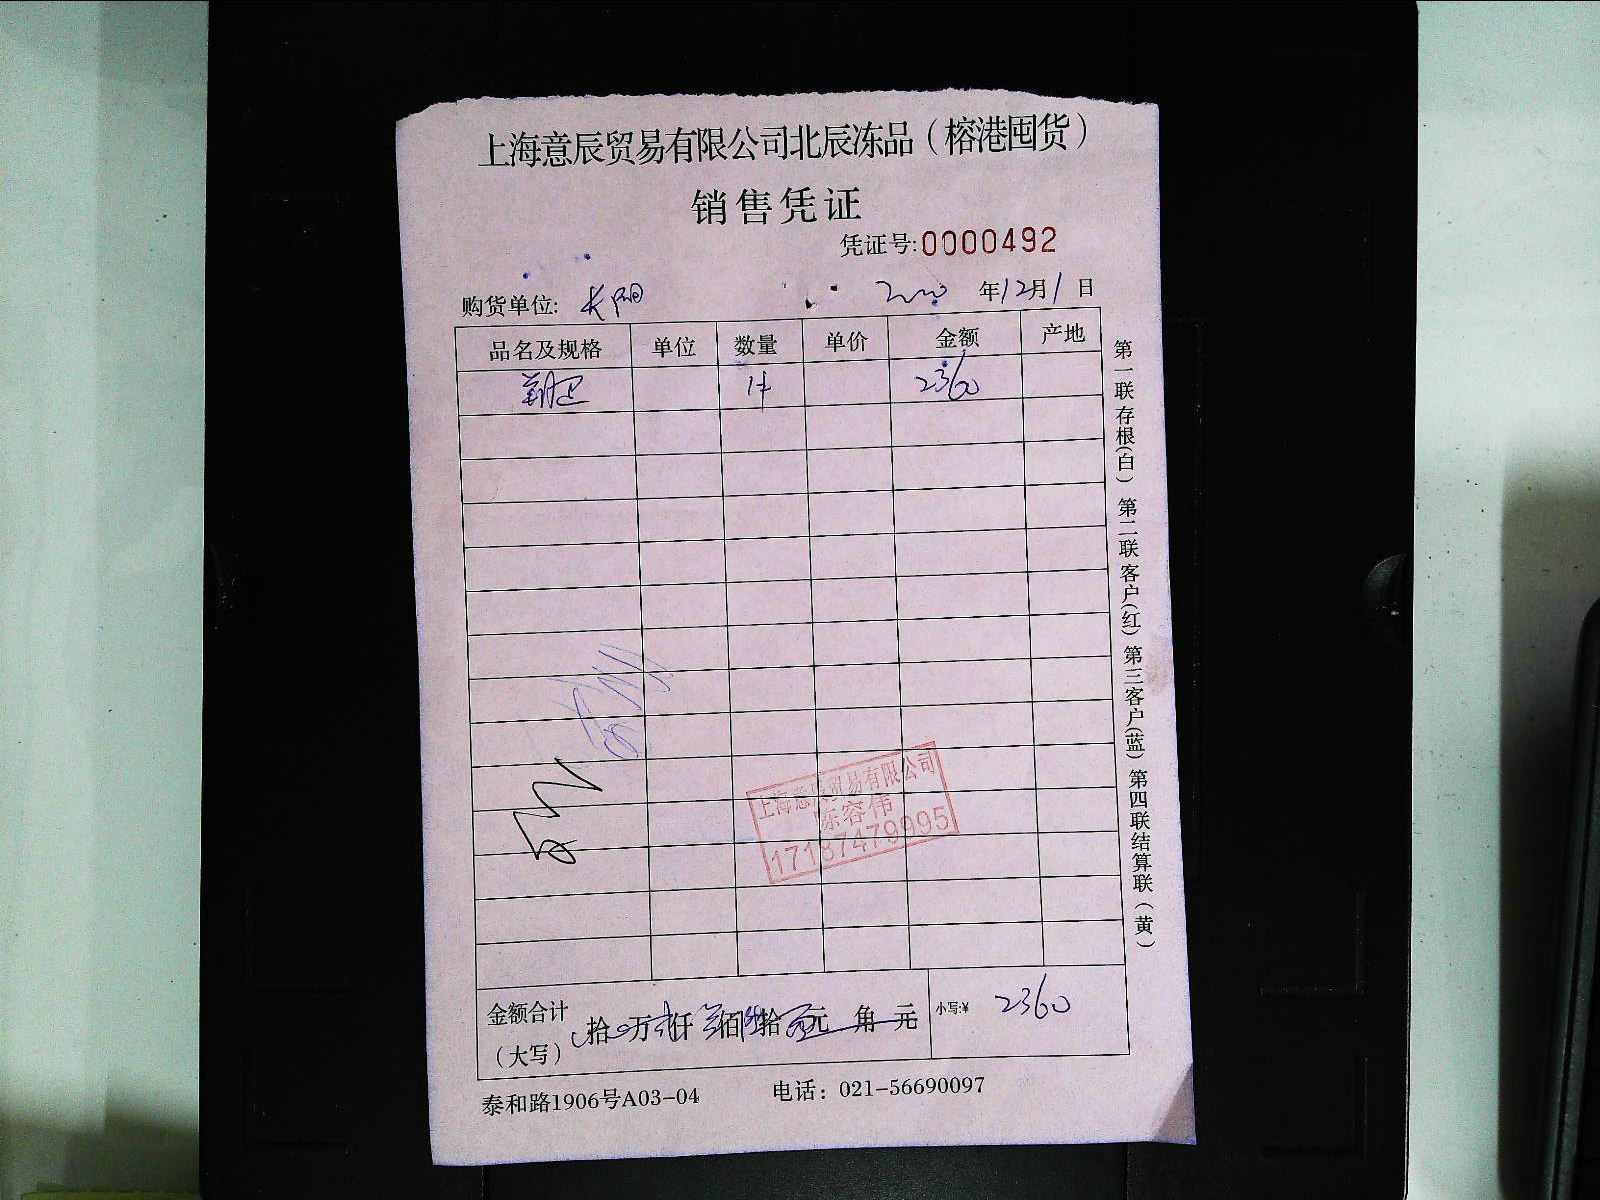 上海意辰贸易有限公司北辰冻品（榕港囤货）
销售凭证
凭证号:0000492
购货单位: 长阳 年12月1日
品名及规格 单位 数量 单价 金额 产地
1件 2360
上海意辰贸易有限公司
陈容伟
17187479995
金额合计
（大写） 拾 万 仟 佰 拾 元 角 元 小写:¥ 2360
泰和路1906号A03-04 电话：021-56690097
第一联存根(白) 第二联客户(红) 第三客户(蓝) 第四联结算联（黄）